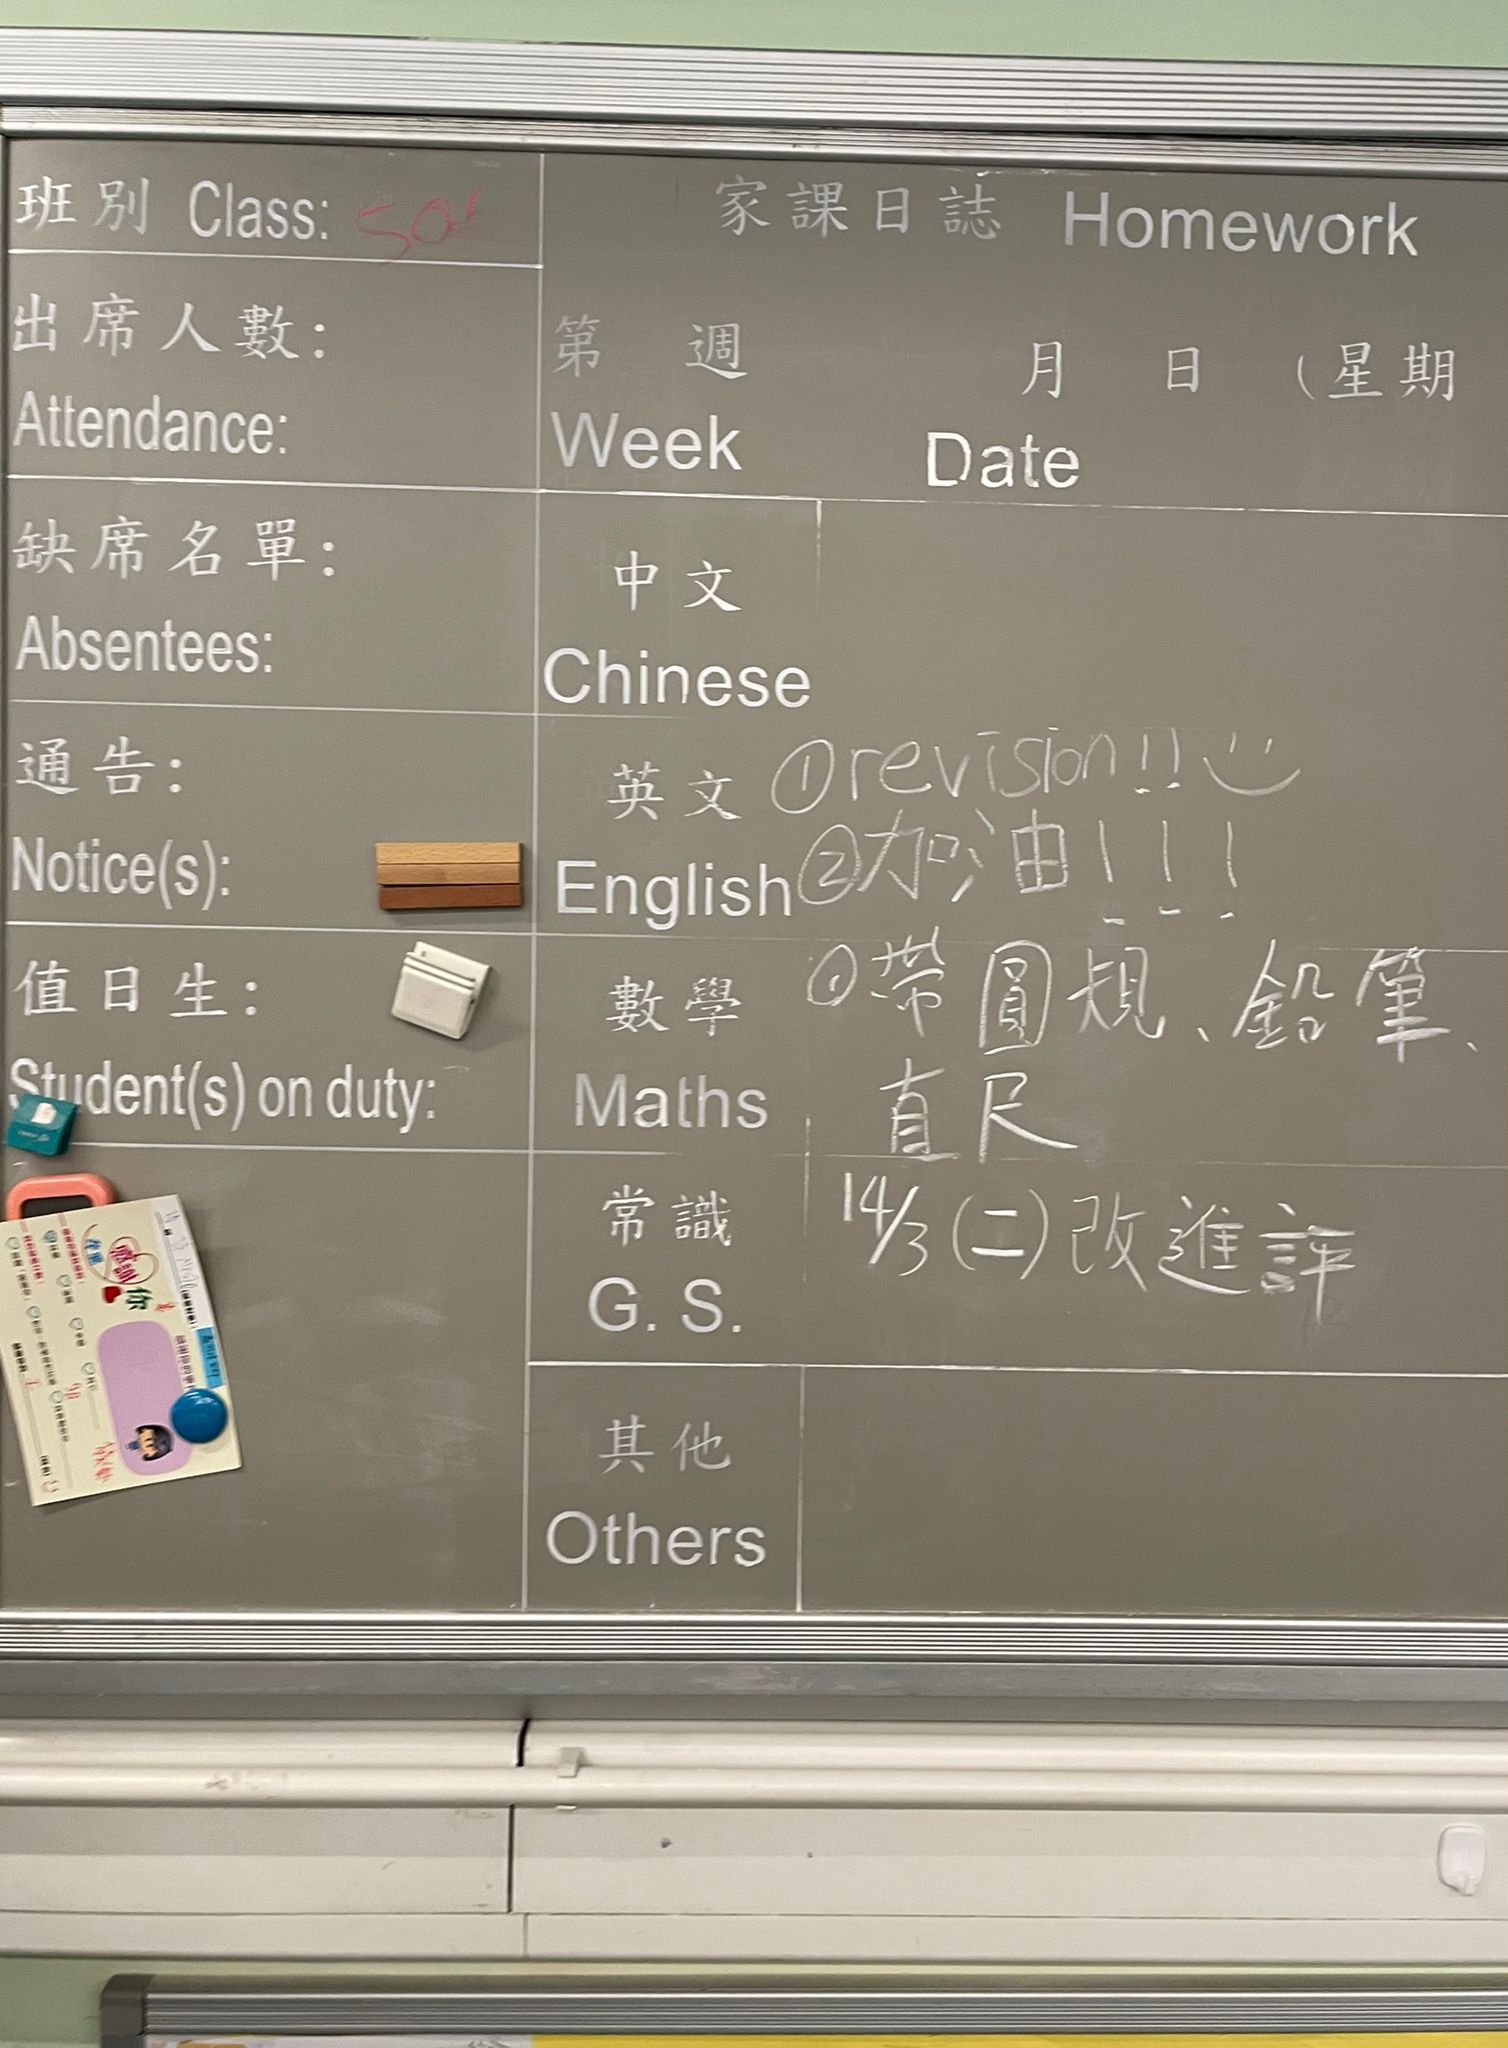 班別 Class: 501
出席人數:
Attendance:
缺席名單:
Absentees:
通告:
Notice(s):
值日生:
Student(s) on duty:
感謝
你
家課日誌 Homework
第 週 月 日 (星期
Week Date
中文
Chinese
英文 ①revision!! :)
English ②加油!!!
數學 ①帶圓規、鉛筆、
Maths 直尺
常識 14/3 (二) 改進評
G. S.
其他
Others